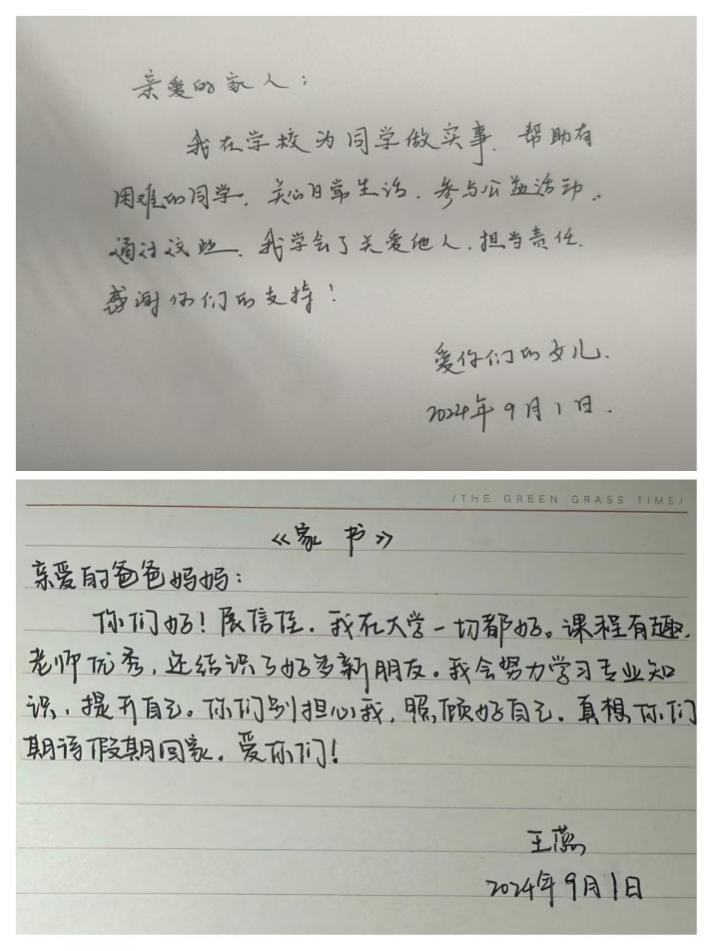 亲爱的家人：
我在学校为同学做实事，帮助有
困难的同学，关心日常生活，参与公益活动。
通过这些，我学会了关爱他人，担当责任，
感谢你们的支持！
爱你们的女儿.
2024年9月1日.
/THE GREEN GRASS TIME/
《家书》
亲爱的爸爸妈妈：
你们好！展信佳，我在大学一切都好。课程有趣，
老师优秀，还结识了好多新朋友。我会努力学习专业知
识，提升自己。你们别担心我，照顾好自己。真想你们
期待假期回家。爱你们！
王蕊
2024年9月1日